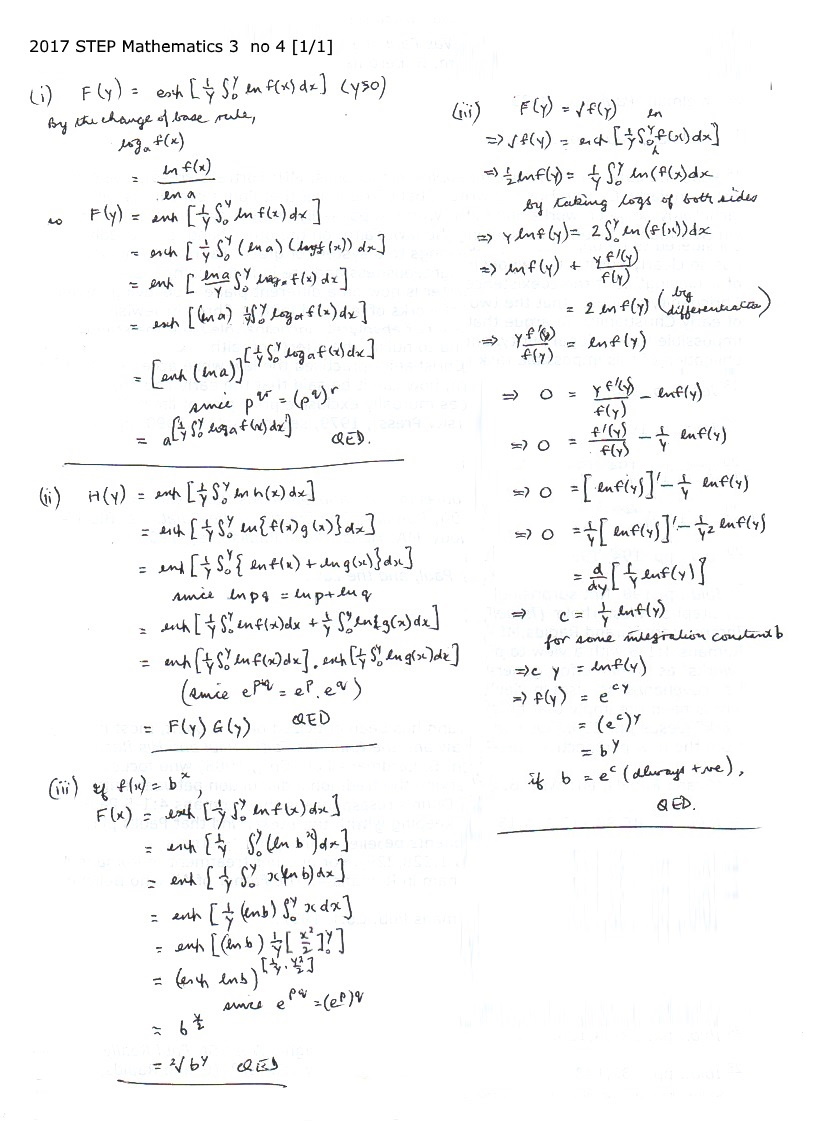 2017 STEP Mathematics 3 no 4 [1/1]
(i) F(y) = exp [1/y ∫₀ʸ ln f(x) dx] (y>0)
By the change of base rule,
logₐ f(x)
= ln f(x) / ln a
so F(y) = exp [1/y ∫₀ʸ ln f(x) dx]
= exp [1/y ∫₀ʸ (ln a)(logₐ f(x)) dx]
= exp [ln a / y ∫₀ʸ logₐ f(x) dx]
= exp [(ln a) 1/y ∫₀ʸ logₐ f(x) dx]
= [exp (ln a)]^[1/y ∫₀ʸ logₐ f(x) dx]
since p^qr = (p^q)^r
= a^[1/y ∫₀ʸ logₐ f(x) dx] QED.
(ii) H(y) = exp [1/y ∫₀ʸ ln h(x) dx]
= exp [1/y ∫₀ʸ ln{f(x)g(x)} dx]
= exp [1/y ∫₀ʸ { ln f(x) + ln g(x)} dx]
since ln pq = ln p + ln q
= exp [1/y ∫₀ʸ ln f(x) dx + 1/y ∫₀ʸ ln{g(x) dx]
= exp [1/y ∫₀ʸ ln f(x) dx] . exp [1/y ∫₀ʸ ln g(x) dx]
(since e^p+q = e^p . e^q)
= F(y) G(y) QED
(iii) if f(x) = b^x,
F(x) = exp [1/y ∫₀ʸ ln f(x) dx]
= exp [1/y ∫₀ʸ (ln b^x) dx]
= exp [1/y ∫₀ʸ x(ln b) dx]
= exp [1/y (ln b) ∫₀ʸ x dx]
= exp [(ln b) 1/y [x²/2]₀ʸ]
= (exp ln b)^[1/y . y²/2]
since e^pq = (e^p)^q
= b^y/2
= ²√b^y QED
(iii) F(y) = √f(y)
⇒ √f(y) = exp [1/y ∫₀ʸ ln f(x) dx]
⇒ 1/2 ln f(y) = 1/y ∫₀ʸ ln (f(x) dx
by taking logs of both sides
⇒ y ln f(y) = 2 ∫₀ʸ ln (f(x)) dx
⇒ ln f(y) + y f'(y) / f(y)
= 2 ln f(y) (by differentiation)
⇒ y f'(y) / f(y) = ln f(y)
⇒ 0 = y f'(y) / f(y) - ln f(y)
⇒ 0 = f'(y) / f(y) - 1/y ln f(y)
⇒ 0 = [ln f(y)]' - 1/y ln f(y)
⇒ 0 = 1/y [ln f(y)]' - 1/y² ln f(y)
= d/dy [1/y ln f(y)]
⇒ c = 1/y ln f(y)
for some integration constant b
⇒ c y = ln f(y)
⇒ f(y) = e^cy
= (e^c)^y
= b^y
if b = e^c (always +ve),
QED.